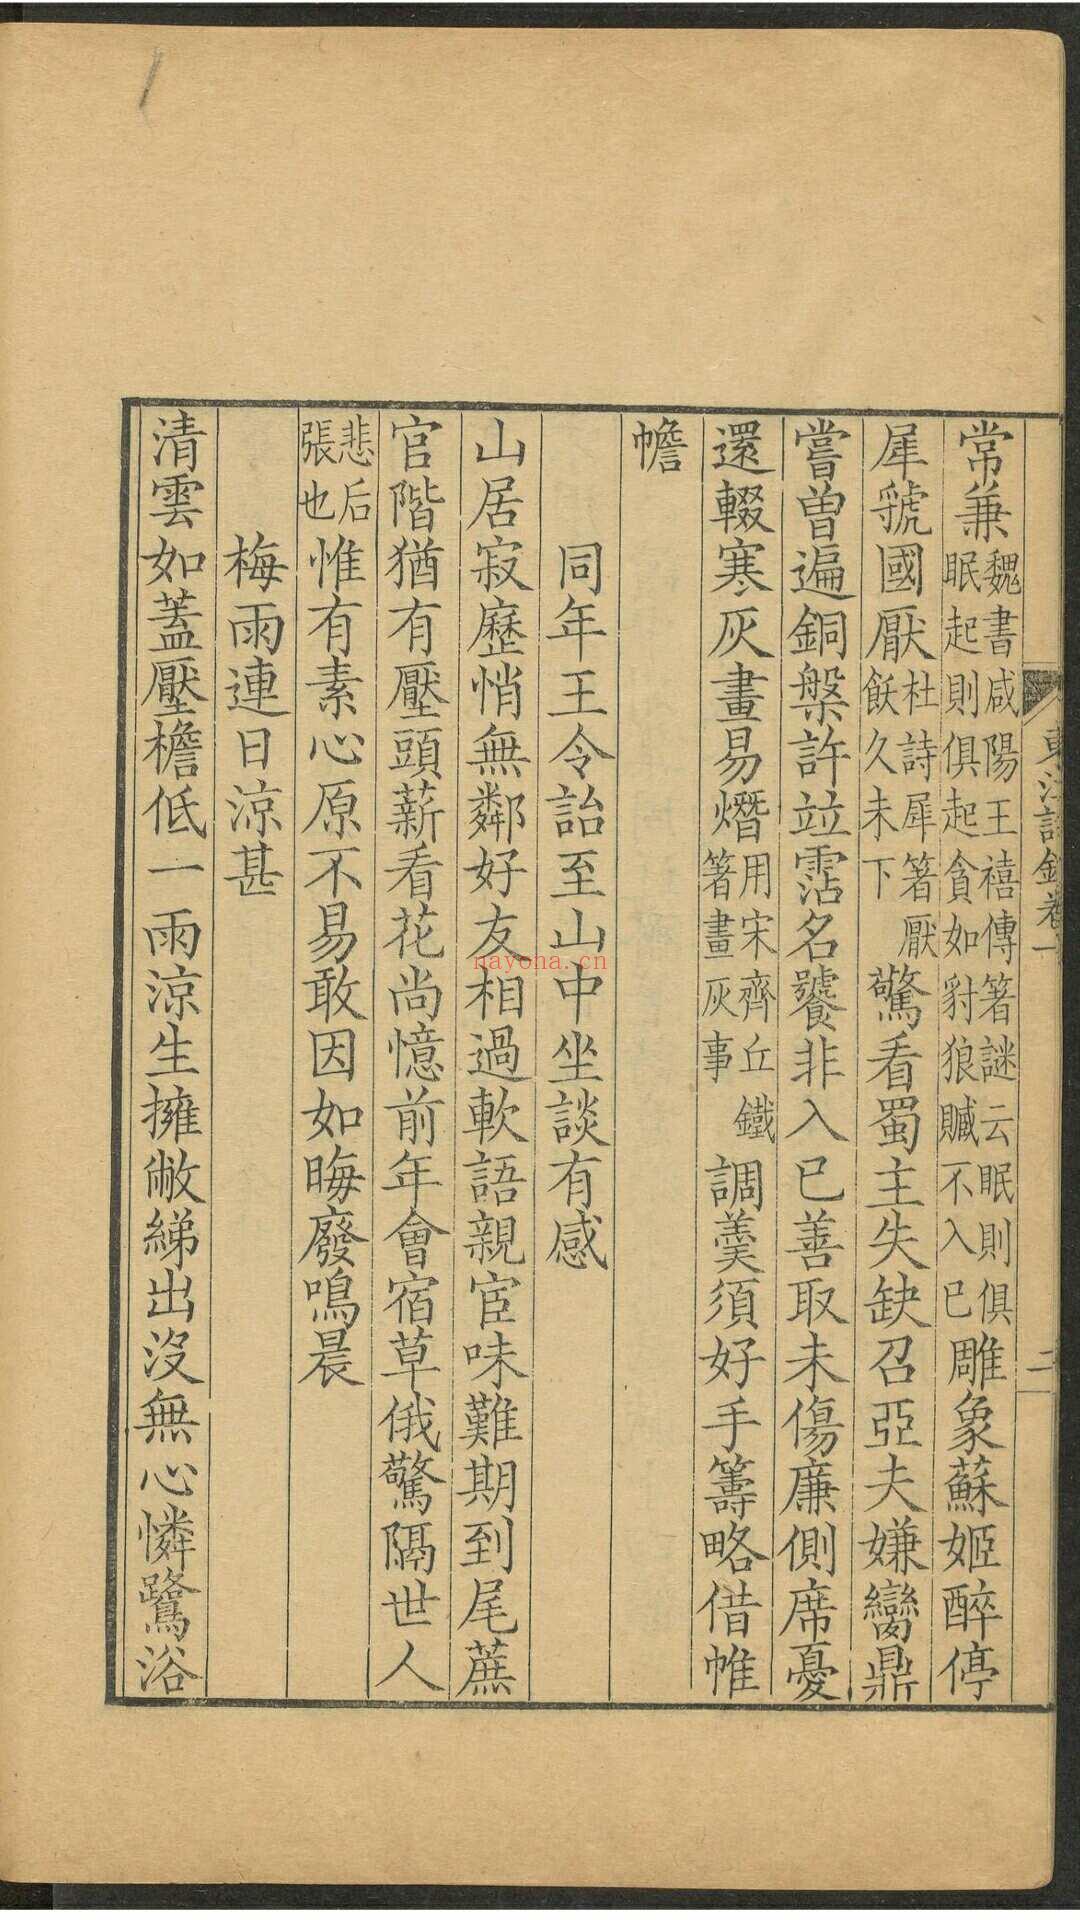 東江詩鈔卷一
二
常兼魏書咸陽王禧傳箸謎云眠則俱眠起則俱起貪如豺狼贓不入已雕象蘇姬醉停
犀虢國厭杜詩犀箸厭飫久未下驚看蜀主失缺召亞夫嫌鸞鼎
嘗曽遍銅槃許竝霑名饕非入已善取未傷廉側席憂
還輟寒灰畫易熸用宋齊丘鐵箸畫灰事調羹須好手籌略借帷
幨
同年王令詒至山中坐談有感
山居寂歷悄無鄰好友相過軟語親宦味難期到尾蔗
官階猶有壓頭薪看花尚憶前年會宿草俄驚隔世人
悲后張也惟有素心原不易敢因如晦廢鳴晨
梅雨連日涼甚
清雲如蓋壓檐低一雨涼生擁敝綈出沒無心憐鷺浴
nayona.cn